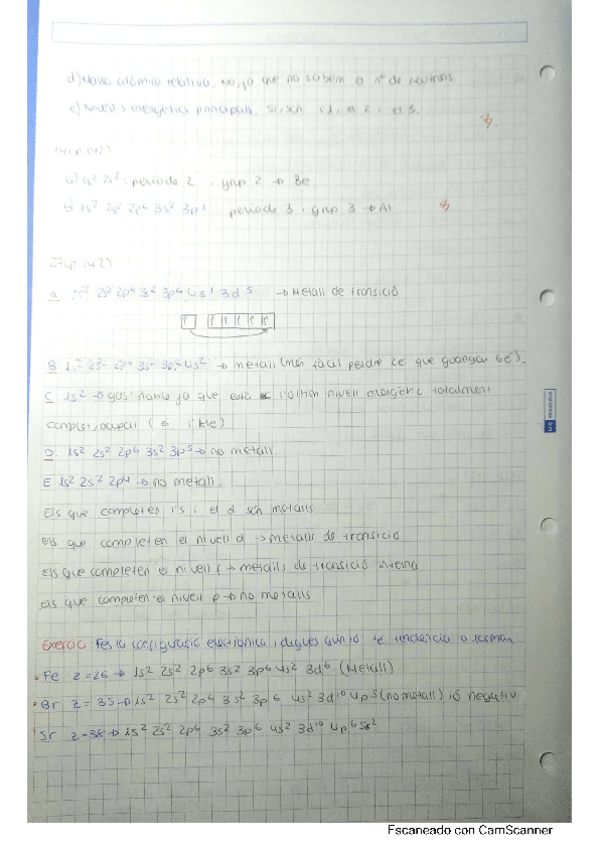 d) Massa atòmica relativa. No, ja que no sabem el nº de neutrons
e) Nivells energètics principals. Sí, són 1, el 2 i el 3.
a) 1s² 2s²: període 2, grup 2 → Be
b) 1s² 2s² 2p6 3s² 3p1 període 3, grup 3 → Al
27(p.142)
a. 2s² 2p6 3s² 3p6 4s1 3d5 → Metall de transició
B 1s² 2s² 2p6 3s² 3p6 4s² → metall (més fàcil perdre 2e que guanyar 6e).
C. 1s² → gas noble ja que està l'últim nivell energètic totalment
complet, ocupat (és l'He)
D. 1s² 2s² 2p6 3s² 3p5 → no metall.
E 1s² 2s² 2p4 → no metall.
Els que completen l's i el d són metalls
Els que completen el nivell d → metalls de transició
Els que completen el nivell f → metalls de transició interna
els que completen el nivell p → no metalls
Exercici: Fes la configuració electrònica i digues quin ió té tendència a formar
• Fe z=26 → 1s² 2s² 2p6 3s² 3p6 4s² 3d6 (Metall)
• Br z=35 → 1s² 2s² 2p6 3s² 3p6 4s² 3d10 4p5 (no metall) ió negatiu
Sr z=38 → 1s² 2s² 2p6 3s² 3p6 4s² 3d10 4p6 5s²
Escaneado con CamScanner